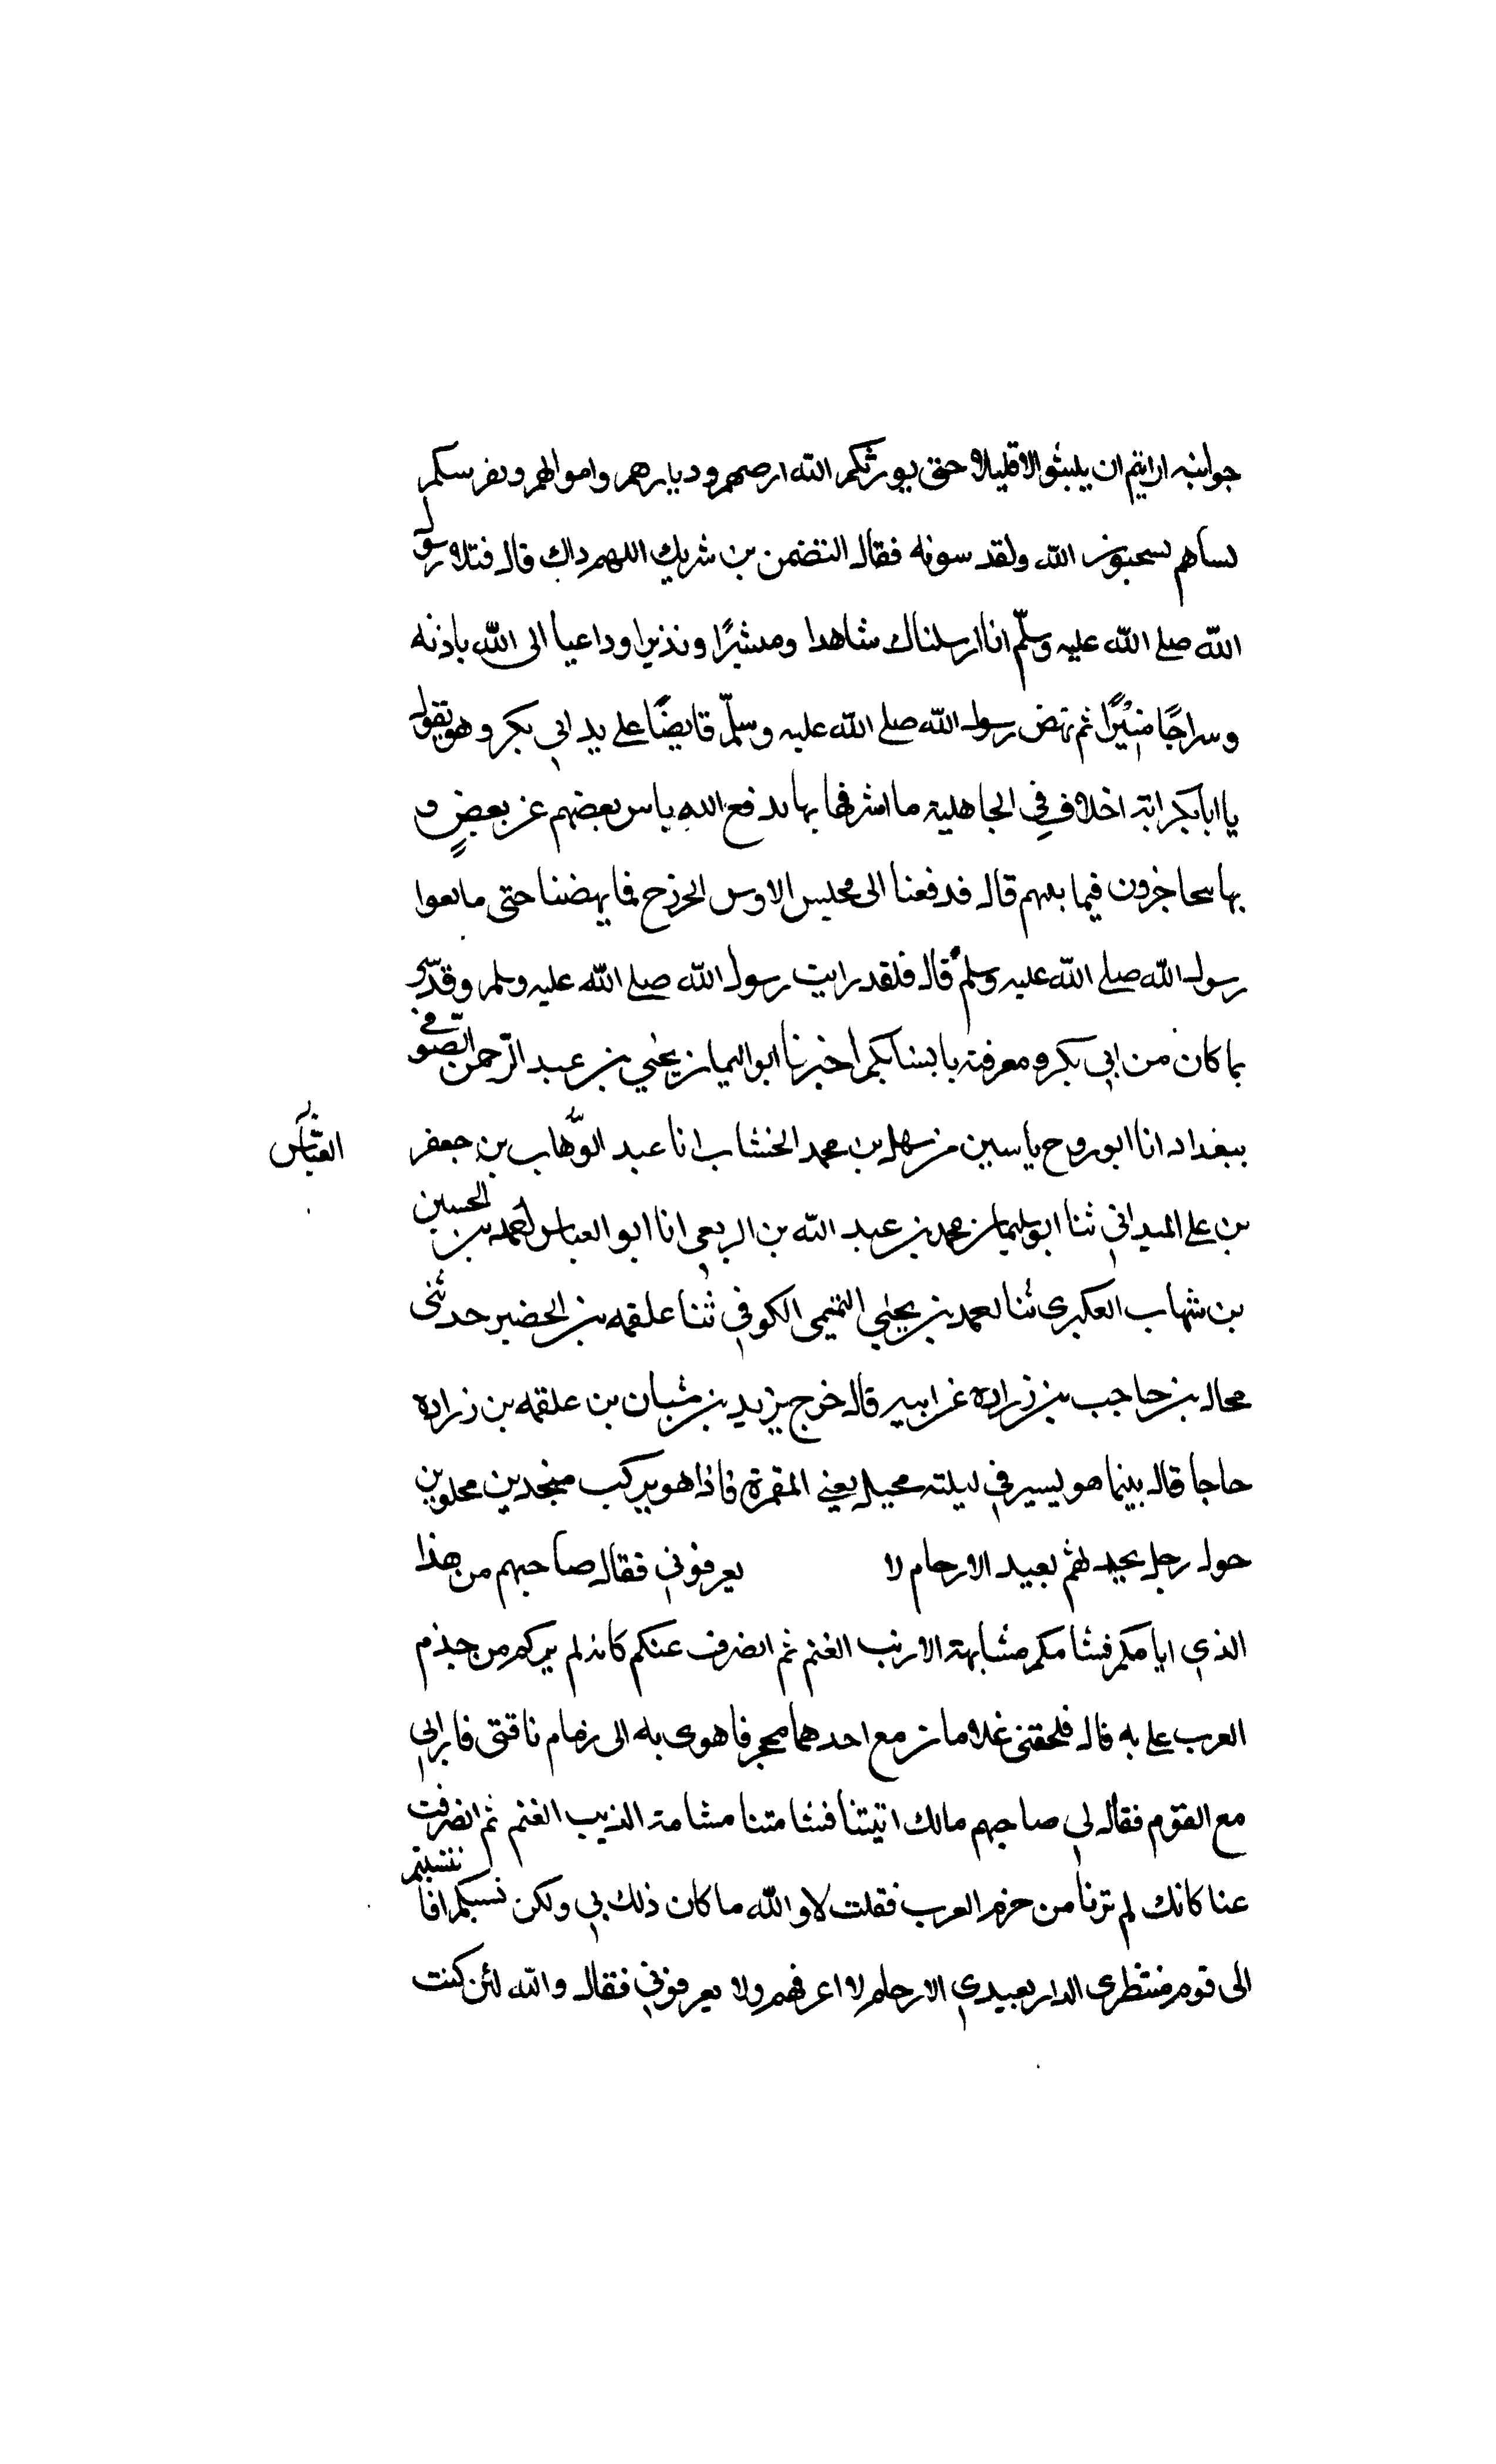 جوانبه ارايتم ان يلبثوا الا قليلا حتى يورثكم الله ارضهم وديارهم واموالهم ويفرسكم
نساهم تسحبون الله ولقد سونه فقال النضمن بن شريك اللهم ذاك قال فتلا رسول
الله صلى الله عليه وسلّم انا ارسلناك شاهدا ومبشرًا ونذيرا وداعيا الى الله باذنه
وسراجًا منيرًا ثم نهض رسول الله صلى الله عليه وسلّم قابضًا على يد ابي بكر وهو يقول
يا ابا بكر اية اخلاف في الجاهلية ما اشرفها بها يدفع الله باس بعضهم عن بعضٍ و
بها يتحاجزون فيما بينهم قال فدفعنا الى مجلس الاوس الخزرج فما نهضنا حتى بايعوا
رسول الله صلى الله عليه وسلم قال فلقد رايت رسول الله صلى الله عليه وسلم وقد سّر
بما كان من ابي بكر ومعرفته بانسابكم اخبرنا ابو اليمان يحيي بن عبد الرّحمن الصّوفي
ببغداد انا ابو روح ياسين بن سهل بن محمد الخشاب انا عبد الوّهاب بن جعفر
العبّاس
بن علي الميداني ثنا ابو سليمان محمد بن عبد الله بن الربعي انا ابو العباس احمد بن الحسين
بن شهاب العكبرى ثنا احمد بن يحيي التميمى الكوفي ثنا علقمه بن الحضير حدثنى
محال بن حاجب بن زراده عن ابيه قال خرج يزيد بن شبان بن علقمه بن زراده
حاجا قال بينما هو يسير في ليلته محيل يعني المقمرة فاذا هو بركب منجدين محلوين
حول رجل بعيد لهم بعيد الارحام لا يعرفوني فقال صاحبهم من هذا
الذي ايامكم فشامكم مشابهة الارنب الغنم ثم انصرف عنكم كانه لم يركم من جذم
العرب علي به قال فلحقنى غلامان مع احدهما محجر فاهوى به الى زمام ناقتى فابراني
مع القوم فقال لي صاحبهم مالك اتيتنا فشامتنا مشامة الذيب الغنم ثم انصرفت
عنا كانك لم ترنا من حزم العرب فقلت لا والله ما كان ذلك بي ولكن نسبكم افا نتسبتم
الى قوم منتظرى الدار بعيدي الارحام لا اعرفهم ولا يعرفوني فقال والله لئن كنت